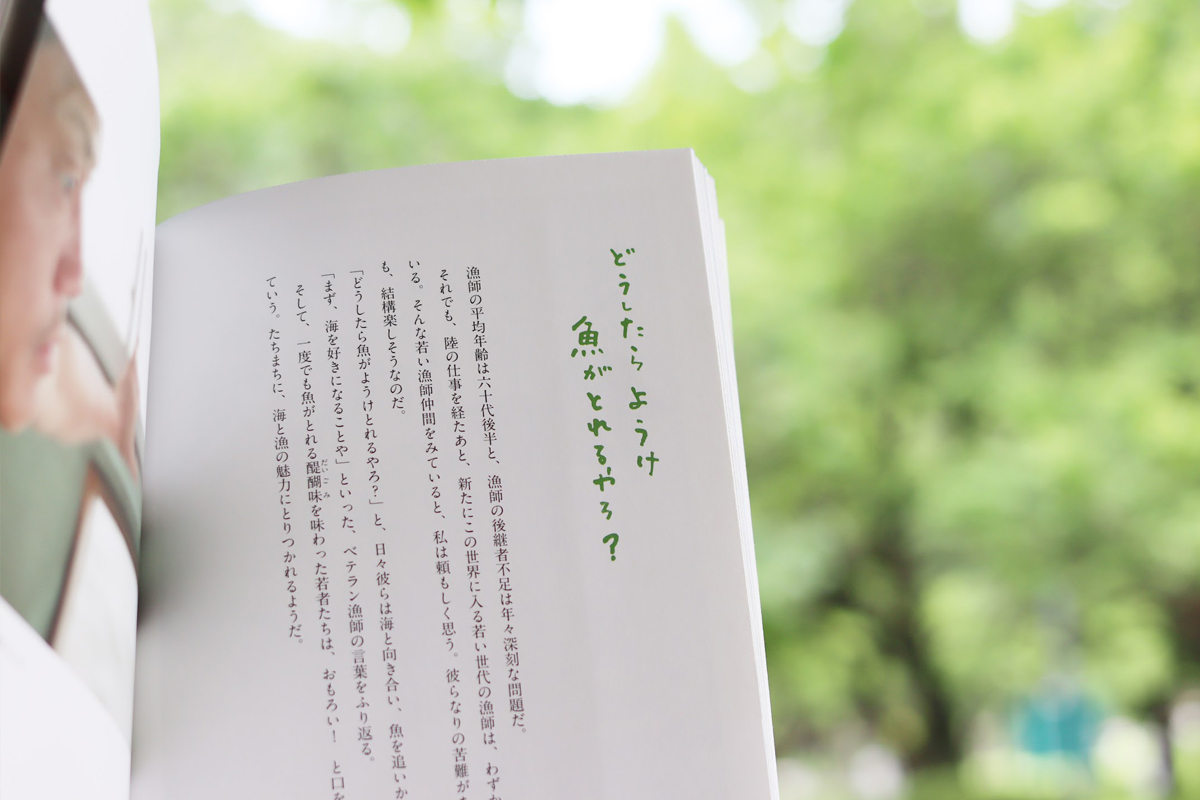 どうしたら ようけ
魚がとれるやろ？
漁師の平均年齢は六十代後半と、漁師の後継者不足は年々深刻な問題だ。
それでも、陸の仕事を経たあと、新たにこの世界に入る若い世代の漁師は、わずか
いる。そんな若い漁師仲間をみていると、私は頼もしく思う。彼らなりの苦難が
も、結構楽しそうなのだ。
「どうしたら魚がようけとれるやろ？」と、日々彼らは海と向き合い、魚を追いか
「まず、海を好きになることや」といった、ベテラン漁師の言葉をふり返る。
そして、一度でも魚がとれる醍醐味を味わった若者たちは、おもろい！ と口を
だいごみ
ていう。たちまちに、海と漁の魅力にとりつかれるようだ。